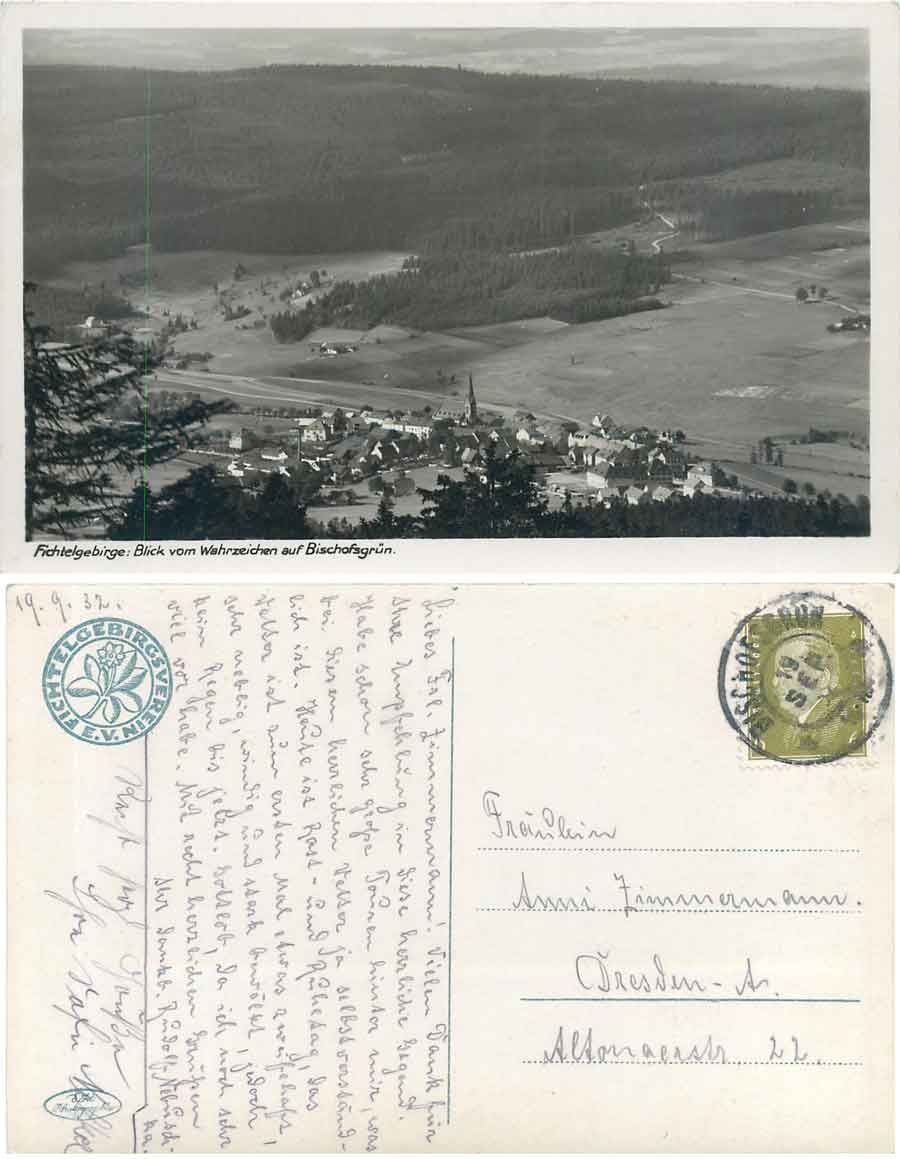 Fichtelgebirge: Blick vom Wahrzeichen auf Bischofsgrün.
19.9.32.
FICHTELGEBIRGSVEREIN E.V.
Liebes Frl. Zimmermann! Vielen Dank für
Ihre Empfehlung in diese herrliche Gegend.
Habe schon sehr große Touren hinter mir, was
bei diesem herrlichen Wetter ja selbstverständ-
lich ist. Heute ist Rast- und Ruhetag, das
Wetter ist zum ersten Mal etwas zweifelhaft,
sehr neblig, windig und stark bewölkt, jedoch
kein Regen bis jetzt. Gottlob, da ich noch sehr
viel vor habe. Mit recht herzlichen Grüßen
Ihr dankb. Rudolf
BISCHOFSGRÜN
19
SEP
Fräulein
Anni Zimmermann.
Dresden-A.
Altonaerstr. 22.